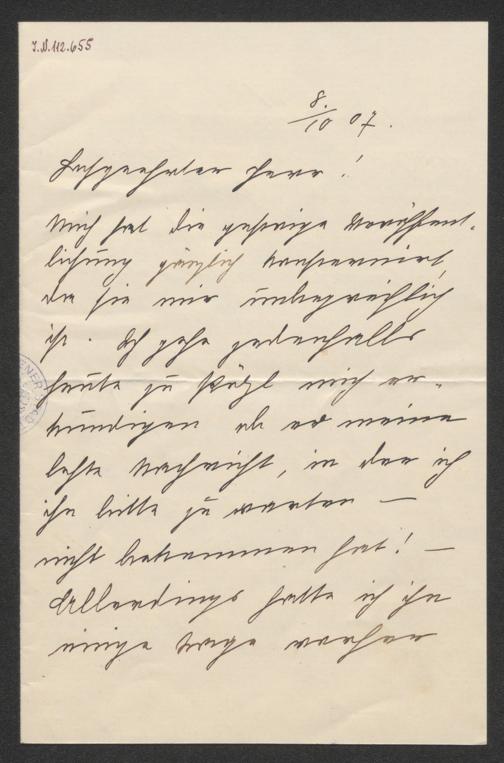 I.N. 112.655
8./10 07.
Hochgeehrter Herr!
Mich hat die gestrige Veröffent-
lichung gänzlich konsterniert,
da sie mir unbegreiflich
ist. Ich gehe jedenfalls
heute zu Pötzl mich er-
kundigen ob er meine
letzte Nachricht, in der ich
ihn bitte zu warten —
nicht bekommen hat! —
Allerdings hatte ich ihn
einige Tage vorher